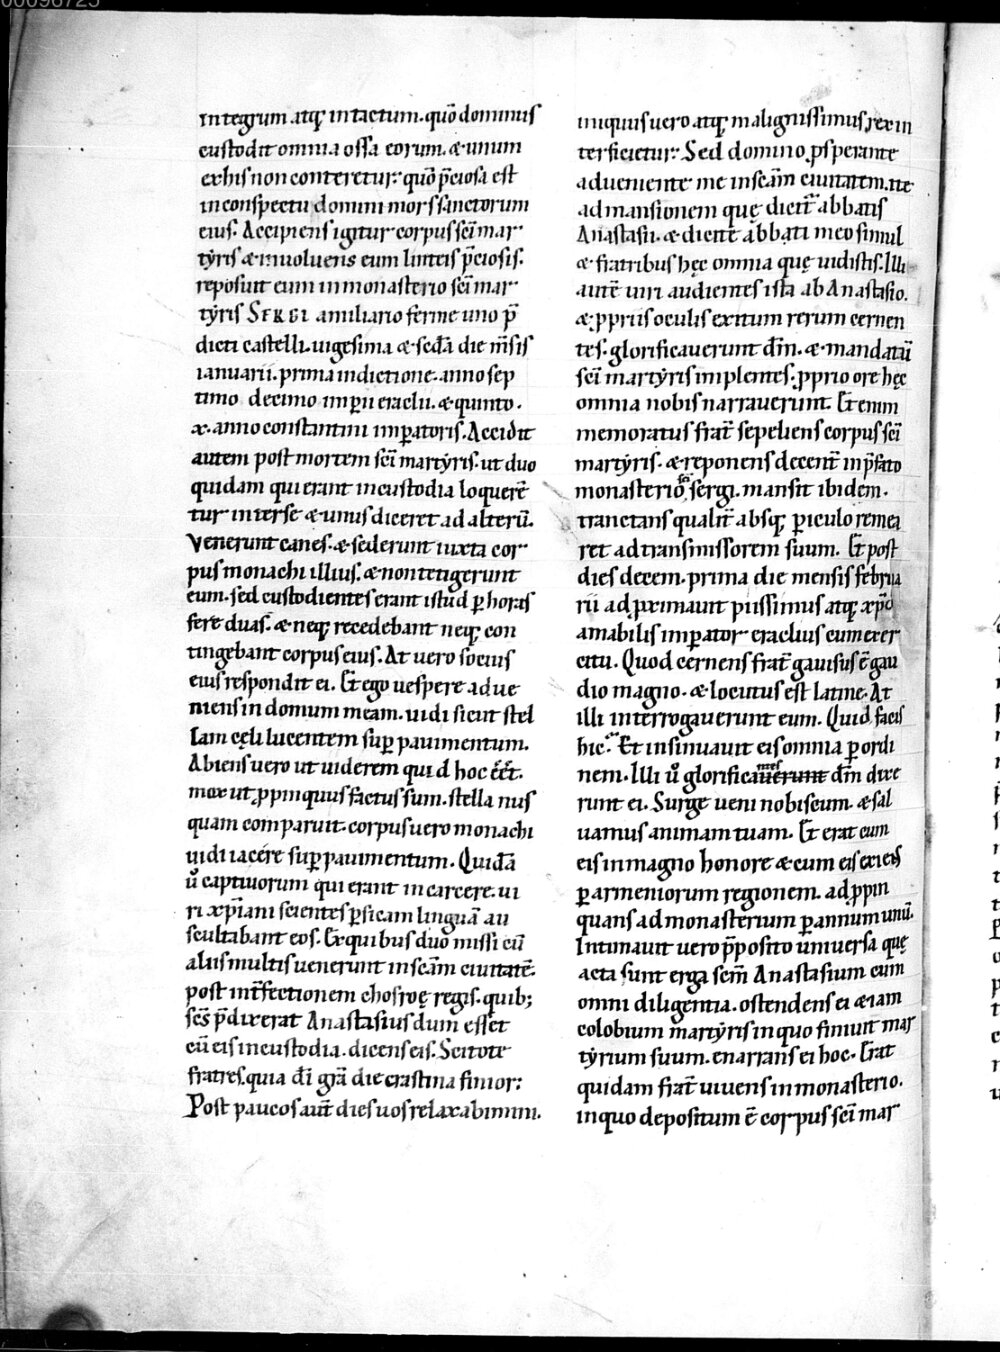 00096725
integrum. atq; intactum. quō dominus
custodit omnia ossa eorum. & unum
ex his non conteretur: quō p̄ciosa est
in conspectu domini mors sanctorum
eius. Accipiens igitur corpus sc̄i mar
tẏris & inuoluens eum linteis p̄ciosis.
reposuit eum in monasterio sc̄i mar
tẏris SERGI a miliario ferme uno p̄
dicti castelli. uigesima & sc̄da die m̄sis
ianuarii. prima indictione. anno sep
timo decimo imp̄ii eraclii. & quinto.
x. anno constantini imp̄atoris. Accidit
autem post mortem sc̄i martẏris. ut duo
quidam qui erant in custodia loquerē
tur inter se & unus diceret ad alterū.
Venerunt canes. & sederunt iuxta cor
pus monachi illius. & non tetigerunt
eum. sed custodientes erant istud ꝑ horas
fere duas. & neq; recedebant neq; con
tingebant corpus eius. At uero socius
eius respondit ei. Et ego uespere adue
niens in domum meam. uidi sicut stel
lam cęli lucentem suꝑ pauimentum.
Abiens uero ut uiderem quid hoc ēēt.
mox ut ꝓpinquus factus sum. stella nus
quam comparuit. corpus uero monachi
uidi iacere suꝑ pauimentum. Quidā
ū captiuorum qui erant in carcere. ui
ri xp̄iani scientes ꝑsicam linguā au
scultabant eos. Ex quibus duo missi cū
aliis multis uenerunt in sc̄am ciuitatē.
post int̄fectionem chosroę regis. quib;
sc̄s p̄dixerat Anastasius dum esset
cū eis in custodia. dicens eis. Scitote
fratres. quia dī grā die crastina finior:
Post paucos aūt dies uos relaxabimini.
iniquus uero atq; malignissimus rex in
terficietur: Sed domino ꝓsperante
adueniente me in sc̄am ciuitatem. ite
ad mansionem quę dicit̄ abbatis
Anastasii. & dicite abbati meo simul
& fratribus hęc omnia quę uidistis. Illi
autē uiri audientes ista ab Anastasio.
& ꝓpriis oculis exitum rerum cernen
tes. glorificauerunt dm̄. & mandatū
sc̄i martẏris implentes. ꝓprio ore hęc
omnia nobis narrauerunt. Etenim
memoratus frat̄ sepeliens corpus sc̄i
martẏris. & reponens decent̄ in p̄fato
monasterio sc̄i sergi. mansit ibidem.
tranctans qualit̄ absq; ꝑiculo remea
ret ad transmissorem suum. Et post
dies decem. prima die mensis februa
rii adꝓximauit piissimus atq; xp̄o
amabilis imꝑator eraclius cum exer
citu. Quod cernens frat̄ gauisus ē gau
dio magno. & locutus est latine. At
illi interrogauerunt eum. Quid facis
hic. Et insinuauit eis omnia ꝑ ordi
nem. Illi ū glorificauerunt ntes dm̄ dixe
runt ei. Surge ueni nobiscum. & sal
uamus animam tuam. Et erat cum
eis in magno honore & cum eis exiens
ꝑ armeniorum regionem. adꝓpin
quans ad monasterium ꝑ annum unū.
Intimauit uero p̄posito uniuersa quę
acta sunt erga sc̄m Anastasium cum
omni diligentia. ostendens ei etiam
colobium martẏris in quo finiuit mar
tẏrium suum. enarrans ei hoc. Erat
quidam frat̄ uiuens in monasterio.
in quo depositum ē corpus sc̄i mar